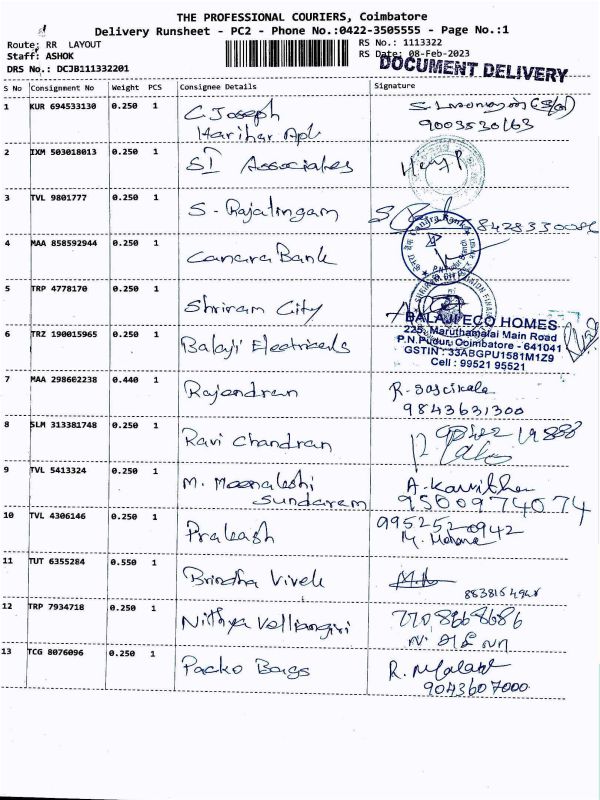 THE PROFESSIONAL COURIERS, Coimbatore
Delivery Runsheet - PC2 - Phone No.:0422-3505555 - Page No.:1
Route: RR LAYOUT
RS No.: 1113322
Staff: ASHOK
RS Date: 08-Feb-2023
DRS No.: DCJB111332201
DOCUMENT DELIVERY
S No Consignment No Weight PCS Consignee Details Signature
1 KUR 694533130 0.250 1 C Joseph
Harihar Apt
9003530163
2 IXM 503018013 0.250 1 SI Associates
3 TVL 9801777 0.250 1 S. Rajalingam
Canara Bank
4 MAA 858592944 0.250 1 Canara Bank
5 TRP 4778170 0.250 1 Shriram City
BALAJI ECO HOMES
225, Maruthamalai Main Road
P.N.Pudur, Coimbatore - 641041
GSTIN : 33ABGPU1581M1Z9
Cell : 99521 95521
6 TRZ 190015965 0.250 1 Balaji Electricals
7 MAA 298602238 0.440 1 Rajendran R. Sascikala
9843631300
8 SLM 313381748 0.250 1 Ravi Chandran
9 TVL 5413324 0.250 1 M. Meenakshi
Sundaram
A. Kavitha
9500974074
10 TVL 4306146 0.250 1 Prakash 9952520942
11 TUT 6355284 0.550 1 Brindha Vivek
12 TRP 7934718 0.250 1 Nithya Velliangiri 7708668686
13 TCG 8076096 0.250 1 Packo Bags
9043607000